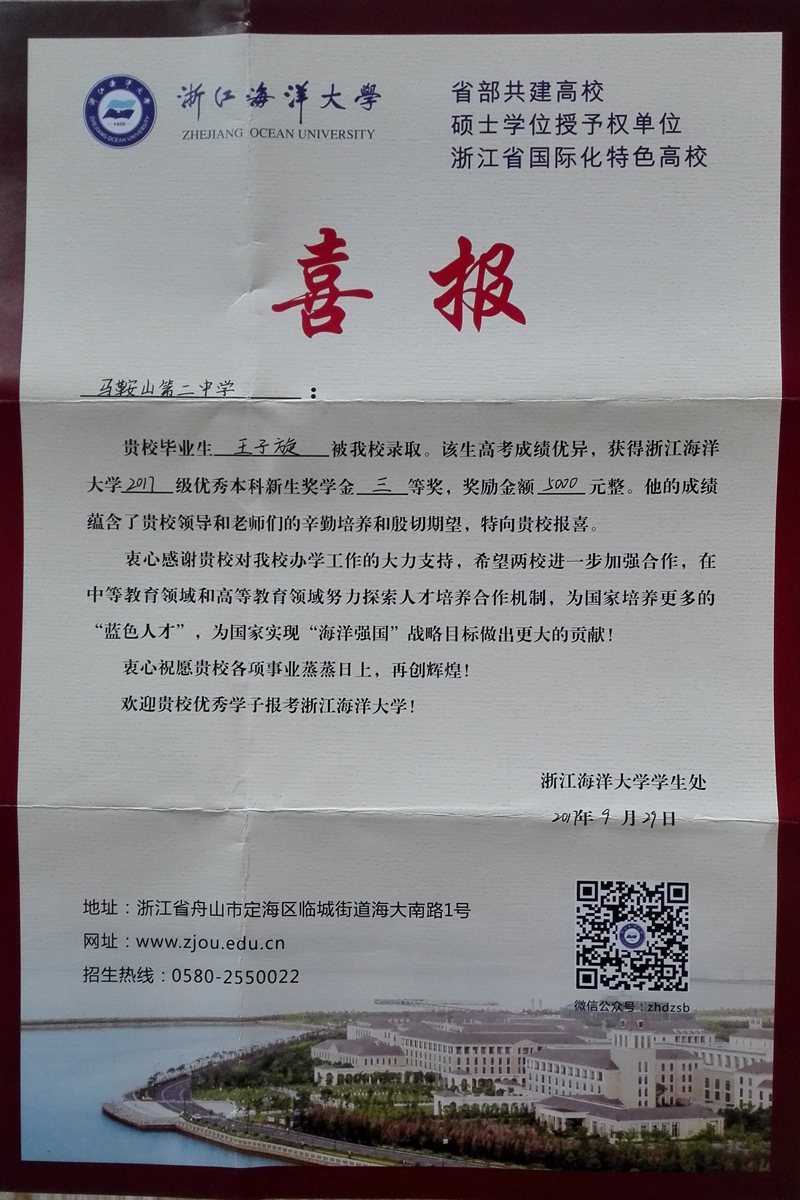 浙江海洋大學
ZHEJIANG OCEAN UNIVERSITY
浙江海洋大學
ZHEJIANG OCEAN UNIVERSITY
省部共建高校
硕士学位授予权单位
浙江省国际化特色高校
喜报
马鞍山第二中学：
贵校毕业生王子旋被我校录取。该生高考成绩优异，获得浙江海洋
大学2017级优秀本科新生奖学金三等奖，奖励金额5000元整。他的成绩
蕴含了贵校领导和老师们的辛勤培养和殷切期望，特向贵校报喜。
衷心感谢贵校对我校办学工作的大力支持，希望两校进一步加强合作，在
中等教育领域和高等教育领域努力探索人才培养合作机制，为国家培养更多的
“蓝色人才”，为国家实现“海洋强国”战略目标做出更大的贡献！
衷心祝愿贵校各项事业蒸蒸日上，再创辉煌！
欢迎贵校优秀学子报考浙江海洋大学！
浙江海洋大学学生处
2017年9月29日
地址：浙江省舟山市定海区临城街道海大南路1号
网址：www.zjou.edu.cn
招生热线：0580-2550022
微信公众号：zhdzsb